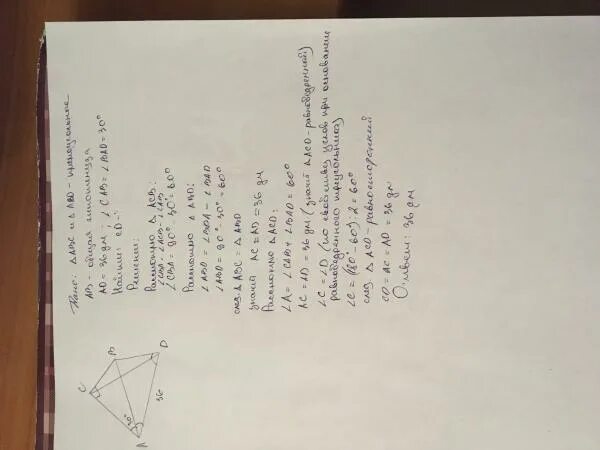 Дано: ΔABC и ΔABD - прямоугольные
AB - общая гипотенуза
AD = 36 дм; ∠CAB = ∠BAD = 30°
Найти: CD - ?
Решение:
Рассмотрим ΔACB:
∠CBA = ∠ACB - ∠CAB
∠CBA = 90° - 30° = 60°
Рассмотрим ΔABD:
∠ABD = ∠BDA - ∠BAD
∠ABD = 90° - 30° = 60°
след. ΔABC = ΔABD
значит AC = AD = 36 дм
Рассмотрим ΔACD:
∠A = ∠CAB + ∠BAD = 60°
AC = AD = 36 дм (значит ΔACD - равнобедренный)
∠C = ∠D (по свойству углов при основании
равнобедренного треугольника)
∠C = (180° - 60) : 2 = 60°
след ΔACD - равносторонний
CD = AC = AD = 36 дм
Ответ: 36 дм
C
B
D
A
30°
36